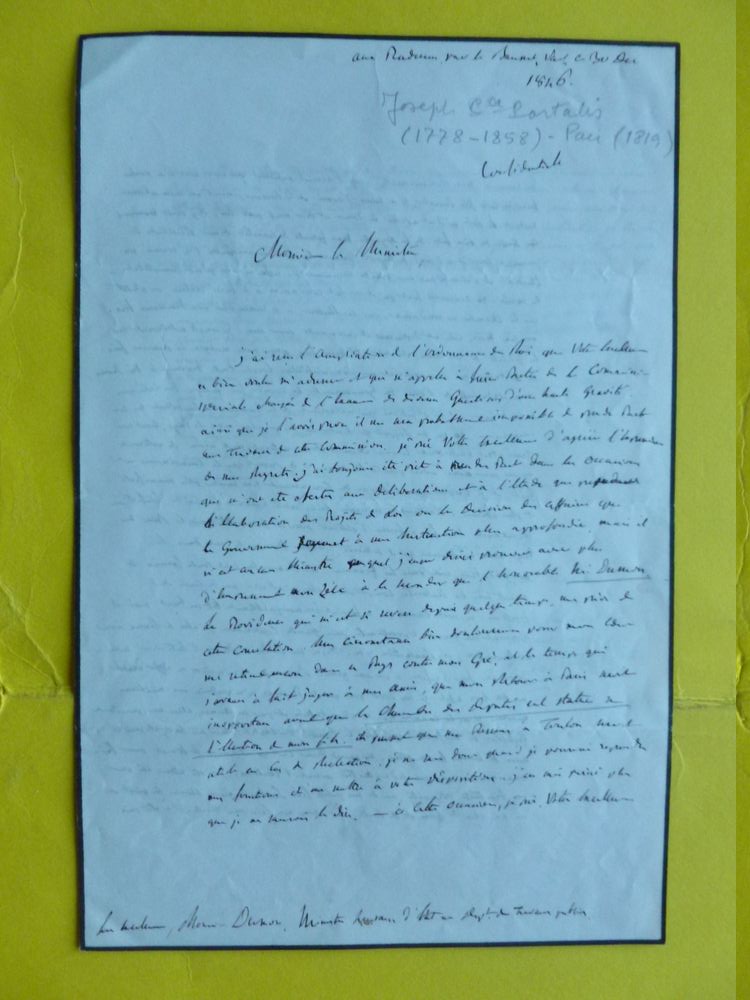 aux Pradeaux par le Beausset, Var, ce 30 Déc
1846.
Joseph Cte Portalis
(1778-1858) - Pair (1819)
Confidentielle
Monsieur le Ministre
j'ai reçu l'ampliation de l'ordonnance du Roi, que Votre Excellence
a bien voulu m'adresser et qui m'appelle à faire Partie de la Commission
spéciale chargée de l'Examen de diverses Questions d'une haute Gravité
ainsi que je l'avois prévu il me sera probablement impossible de prendre Part
aux Travaux de cette Commission. je prie Votre Excellence d'agréer l'expression
de mes Regrets. j'ai toujours été prêt à prendre Part dans les occasions
qui m'ont été offertes aux Délibérations et à l'Etude que
l'Elaboration des Projets de Loi ou la Décision des affaires que
le Gouvernement à une Instruction plus approfondie, mais il
n'est aucun Ministre auquel j'eusse désiré prouver avec plus
d'empressement mon Zèle à le seconder que l'honorable Mr Dumon.
La Providence qui m'est si sévère depuis quelque temps, me prive de
cette Consolation. des circonstances bien douloureuses pour mon Cœur
me retiennent encore dans ce Pays contre mon Gré, et le temps qui
à fait juger à mes amis, que mon Retour à Paris seroit
inopportun avant que la Chambre des Députés eut statué sur
l'Election de mon fils. ils pensent que ma Présence à Toulon seroit
utile en cas de Réélection. je ne sais donc quand je pourrai reprendre
mes fonctions et me mettre à votre disposition. j'en suis peiné plus
que je ne saurois le dire. — à cette occasion, je prie Votre Excellence
Son Excellence, Monsieur Dumon, Ministre Secrétaire d'Etat au Dépt des Travaux publics.